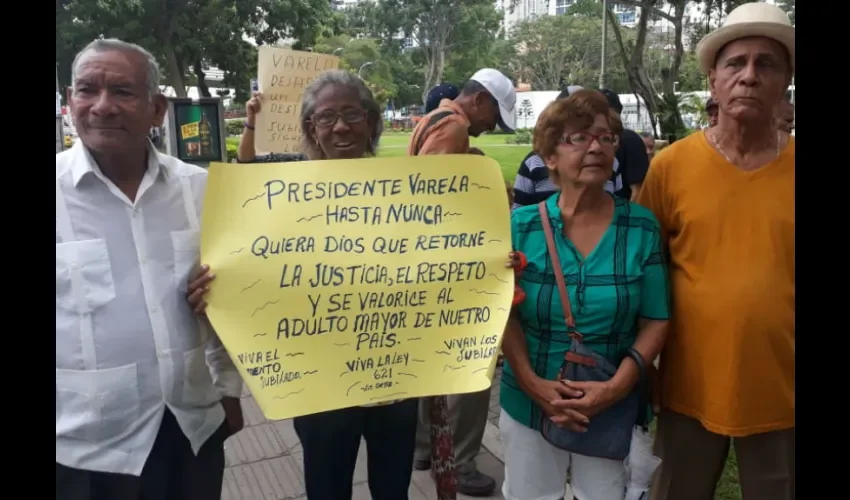 VARELA
DEJAR
UN
PRESIDENTE VARELA
HASTA NUNCA
QUIERA DIOS QUE RETORNE
LA JUSTICIA, EL RESPETO
Y SE VALORICE AL
ADULTO MAYOR DE NUETRO
PAIS.
VIVA EL
JUBILADO.
VIVA LA LEY
621
VIVAN LOS